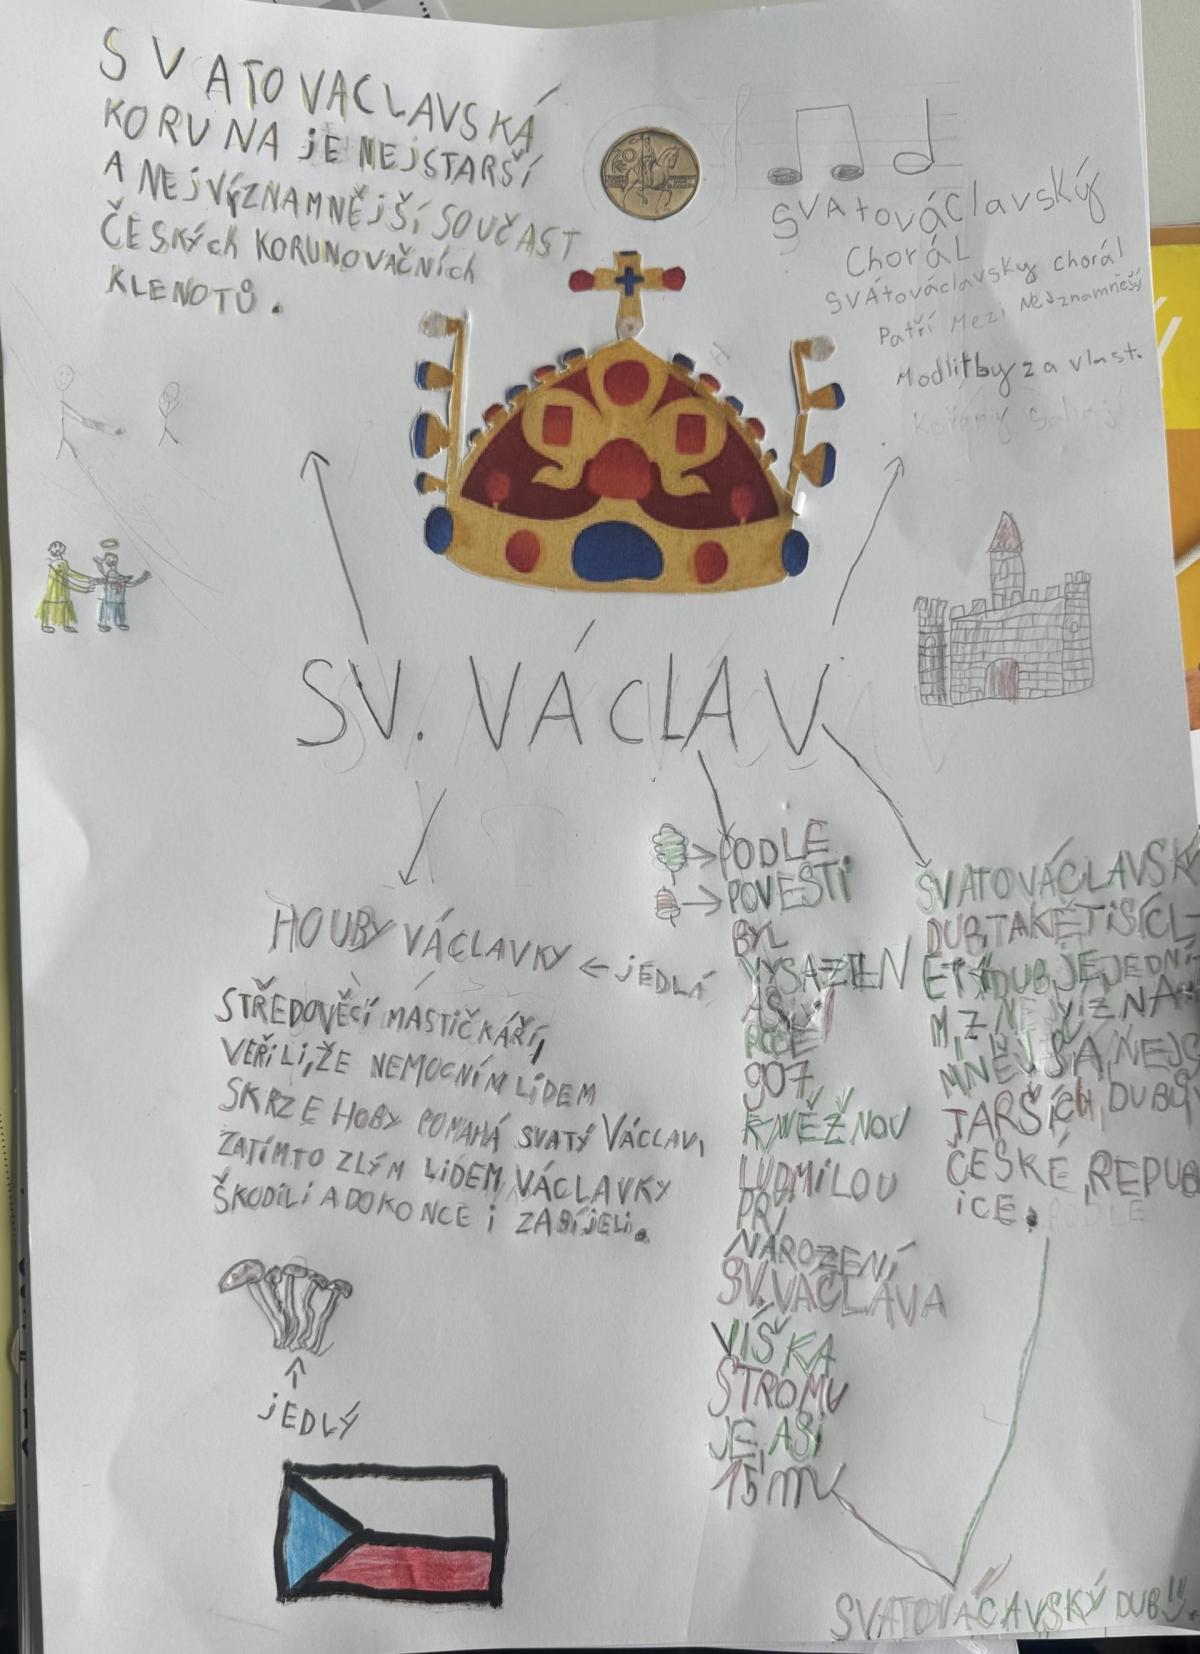 SVATOVACLAVSKÁ
KORUNA jE NEJSTARŠÍ
A NEJVÝZNAMNĚJŠÍ SOUČAST
ČESKÝch KORUNOVAČNÍch
KLENOTŮ.
20
SVAtováclavský
Chorál
SVÁtováclavsky chorál
Patří Mezi Nejznamnější
Modlitby za vlast.
Kořeny
SV. VÁCLAV
HOUBY VÁCLAVKY ← jEDLÁ
STŘEDOVĚCÍ MASTIČKÁŘÍ,
VEŘiLi, ŽE NEMOCNÍM LIDEM
SKRZE HOBY POMAHÁ SVATÝ VÁCLAV,
ZATÍMTO ZLÝM LIDEM VÁCLAVKY
ŠKODILI ADOKONCE i ZABÍJELI.
jEDLÝ
PODLE
POVESTI
BYL
VYSAZEN
AS
ROCE
907
KNĚŽNOU
LUDMILOU
PRI
NAROZENÍ
SV. VÁCLAVA
VÍŠKA
STROMU
JE ASI
15m
SVATOVÁCLAVSK
DUB, TAKÉTISÍCL
ETÝ DUB JEJEDNÍ
M Z NEJVÍZNA
MNĚJŠÁ, NEJS
TARŠÍCH DUBŮ V
ČESKÉ REPUB
iCE.
PODLE
SVATOVÁCAVSKÝ DUB!!